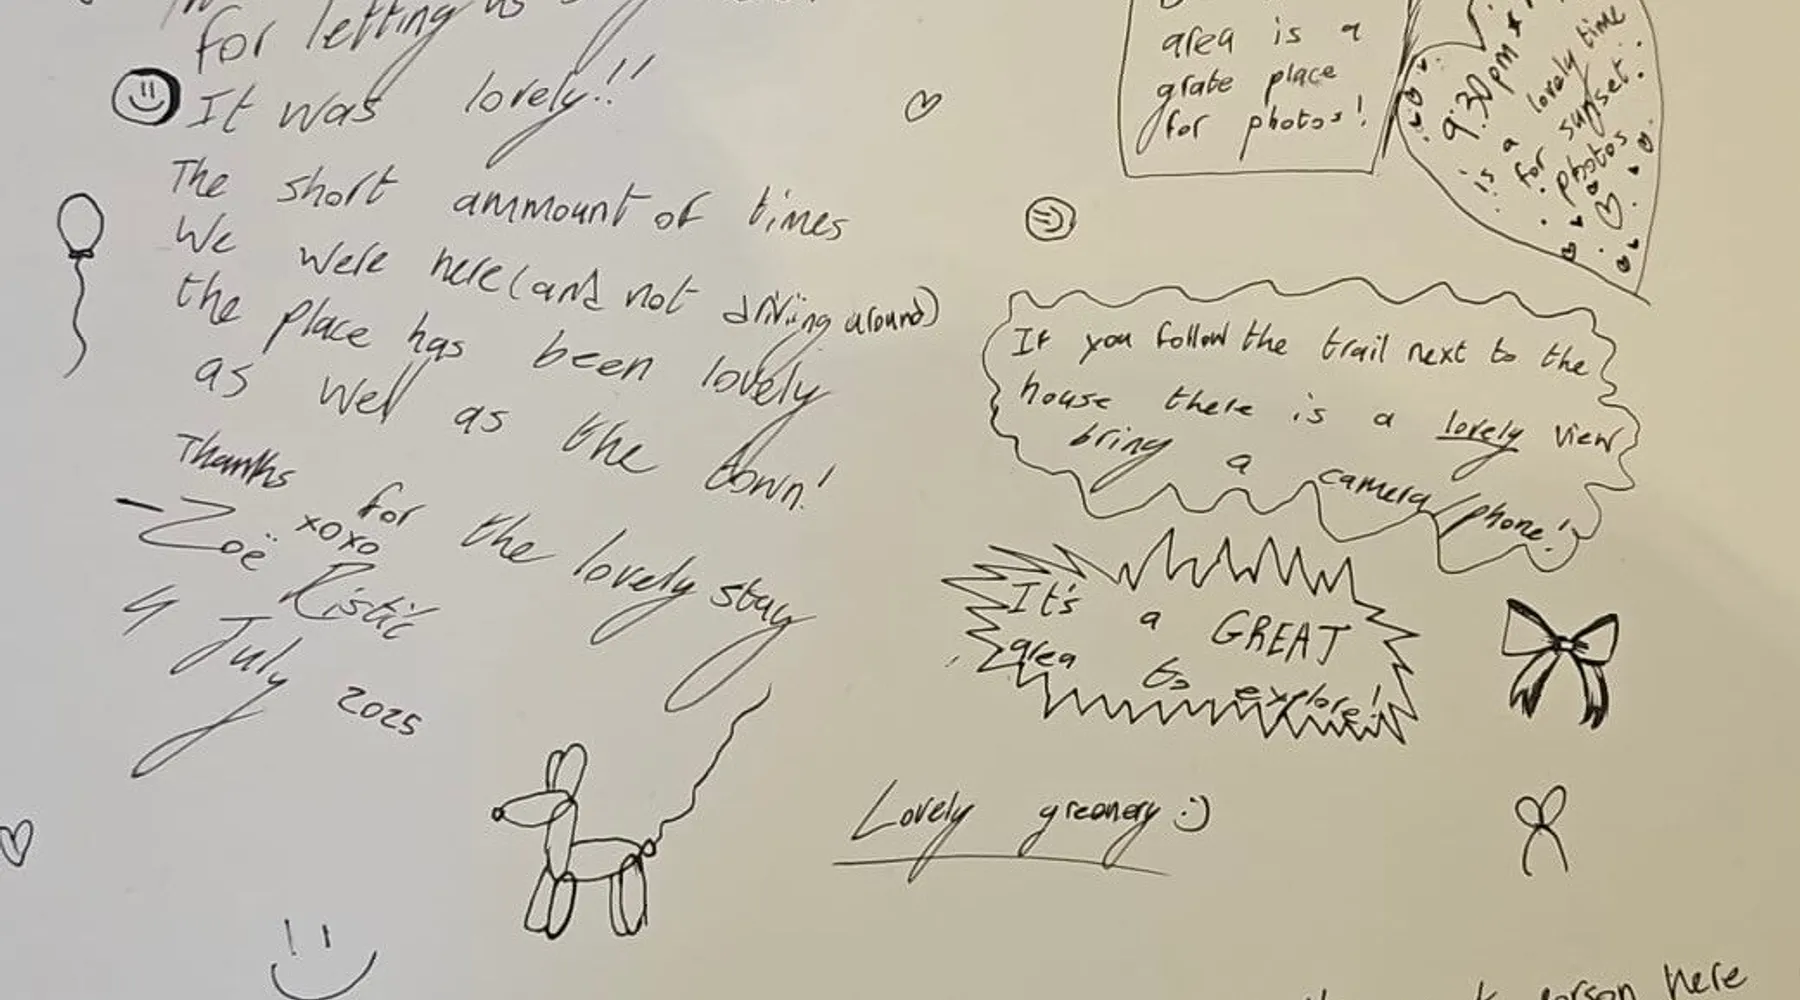 for letting us
It was lovely!!
The short ammount of times
We were here (and not driving around)
the place has been lovely
as well as the town!
Thanks for the lovely stay
xoxo
- Zoë Ristic
4 July 2025
area is a
grate place
for photos!
9:30pm
is a lovely time
for sunset
photos
If you follow the trail next to the
house there is a lovely view
bring a camera/phone!
It's a GREAT
area to explore!
Lovely greenery :)
person here